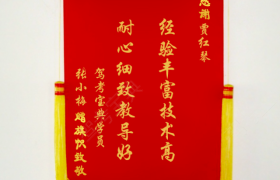 感谢贾红琴
经验丰富技术高
耐心细致教导好
驾考宝典学员
张小梅赠旗致敬